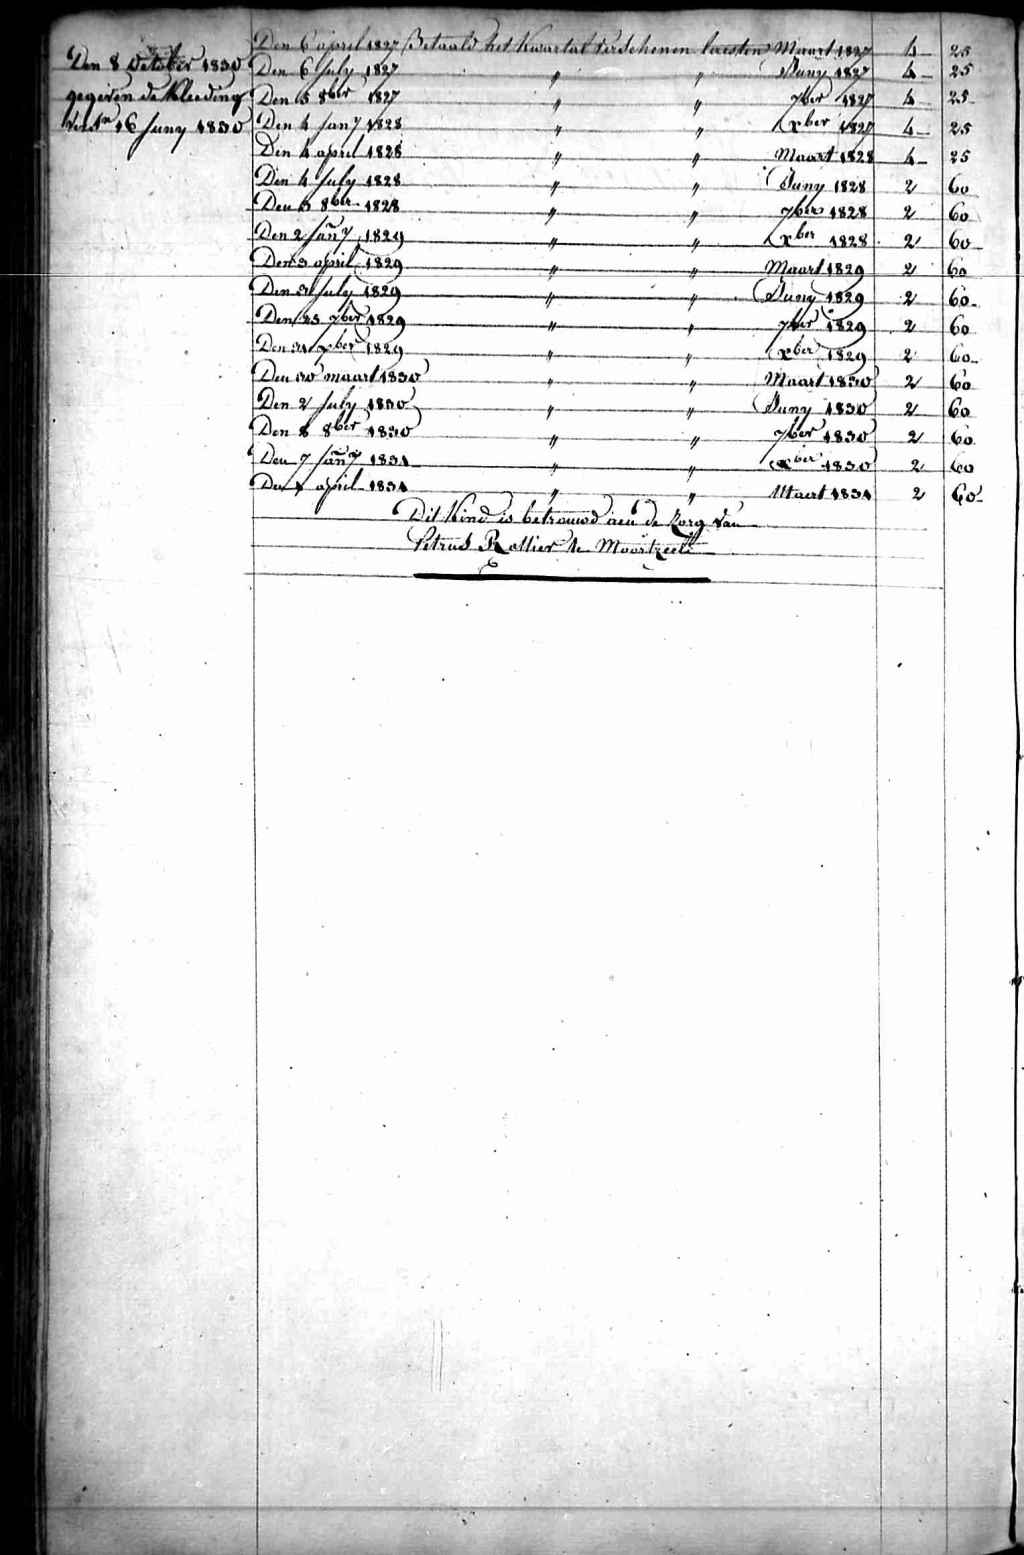 Den 8 October 1830
gegeven de Kleeding
16 Juny 1830
Den 6 april 1827 Betaald het Kwartal verschenen laesten Maart 1827 4 25
Den 6 July 1827 " " Juny 1827 4 25
Den 5 8ber 1827 " " 7ber 1827 4 25
Den 4 Jany 1828 " " xber 1827 4 25
Den 4 april 1828 " " Maart 1828 4 25
Den 4 July 1828 " " Juny 1828 2 60
Den 3 8ber 1828 " " 7ber 1828 2 60
Den 2 Jany 1829 " " xber 1828 2 60
Den 3 april 1829 " " Maart 1829 2 60
Den July 1829 " " Juny 1829 2 60
Den 25 7ber 1829 " " 7ber 1829 2 60
Den 31 xber 1829 " " xber 1829 2 60
Den 30 maart 1830 " " Maart 1830 2 60
Den 2 July 1830 " " Juny 1830 2 60
Den 8 8ber 1830 " " 7ber 1830 2 60
Den 7 Jany 1831 " " xber 1830 2 60
Den april 1831 " " Maart 1831 2 60
Dit Kind is betrouwd aen de Zorg van
Petrus Rottier te Moortzeele